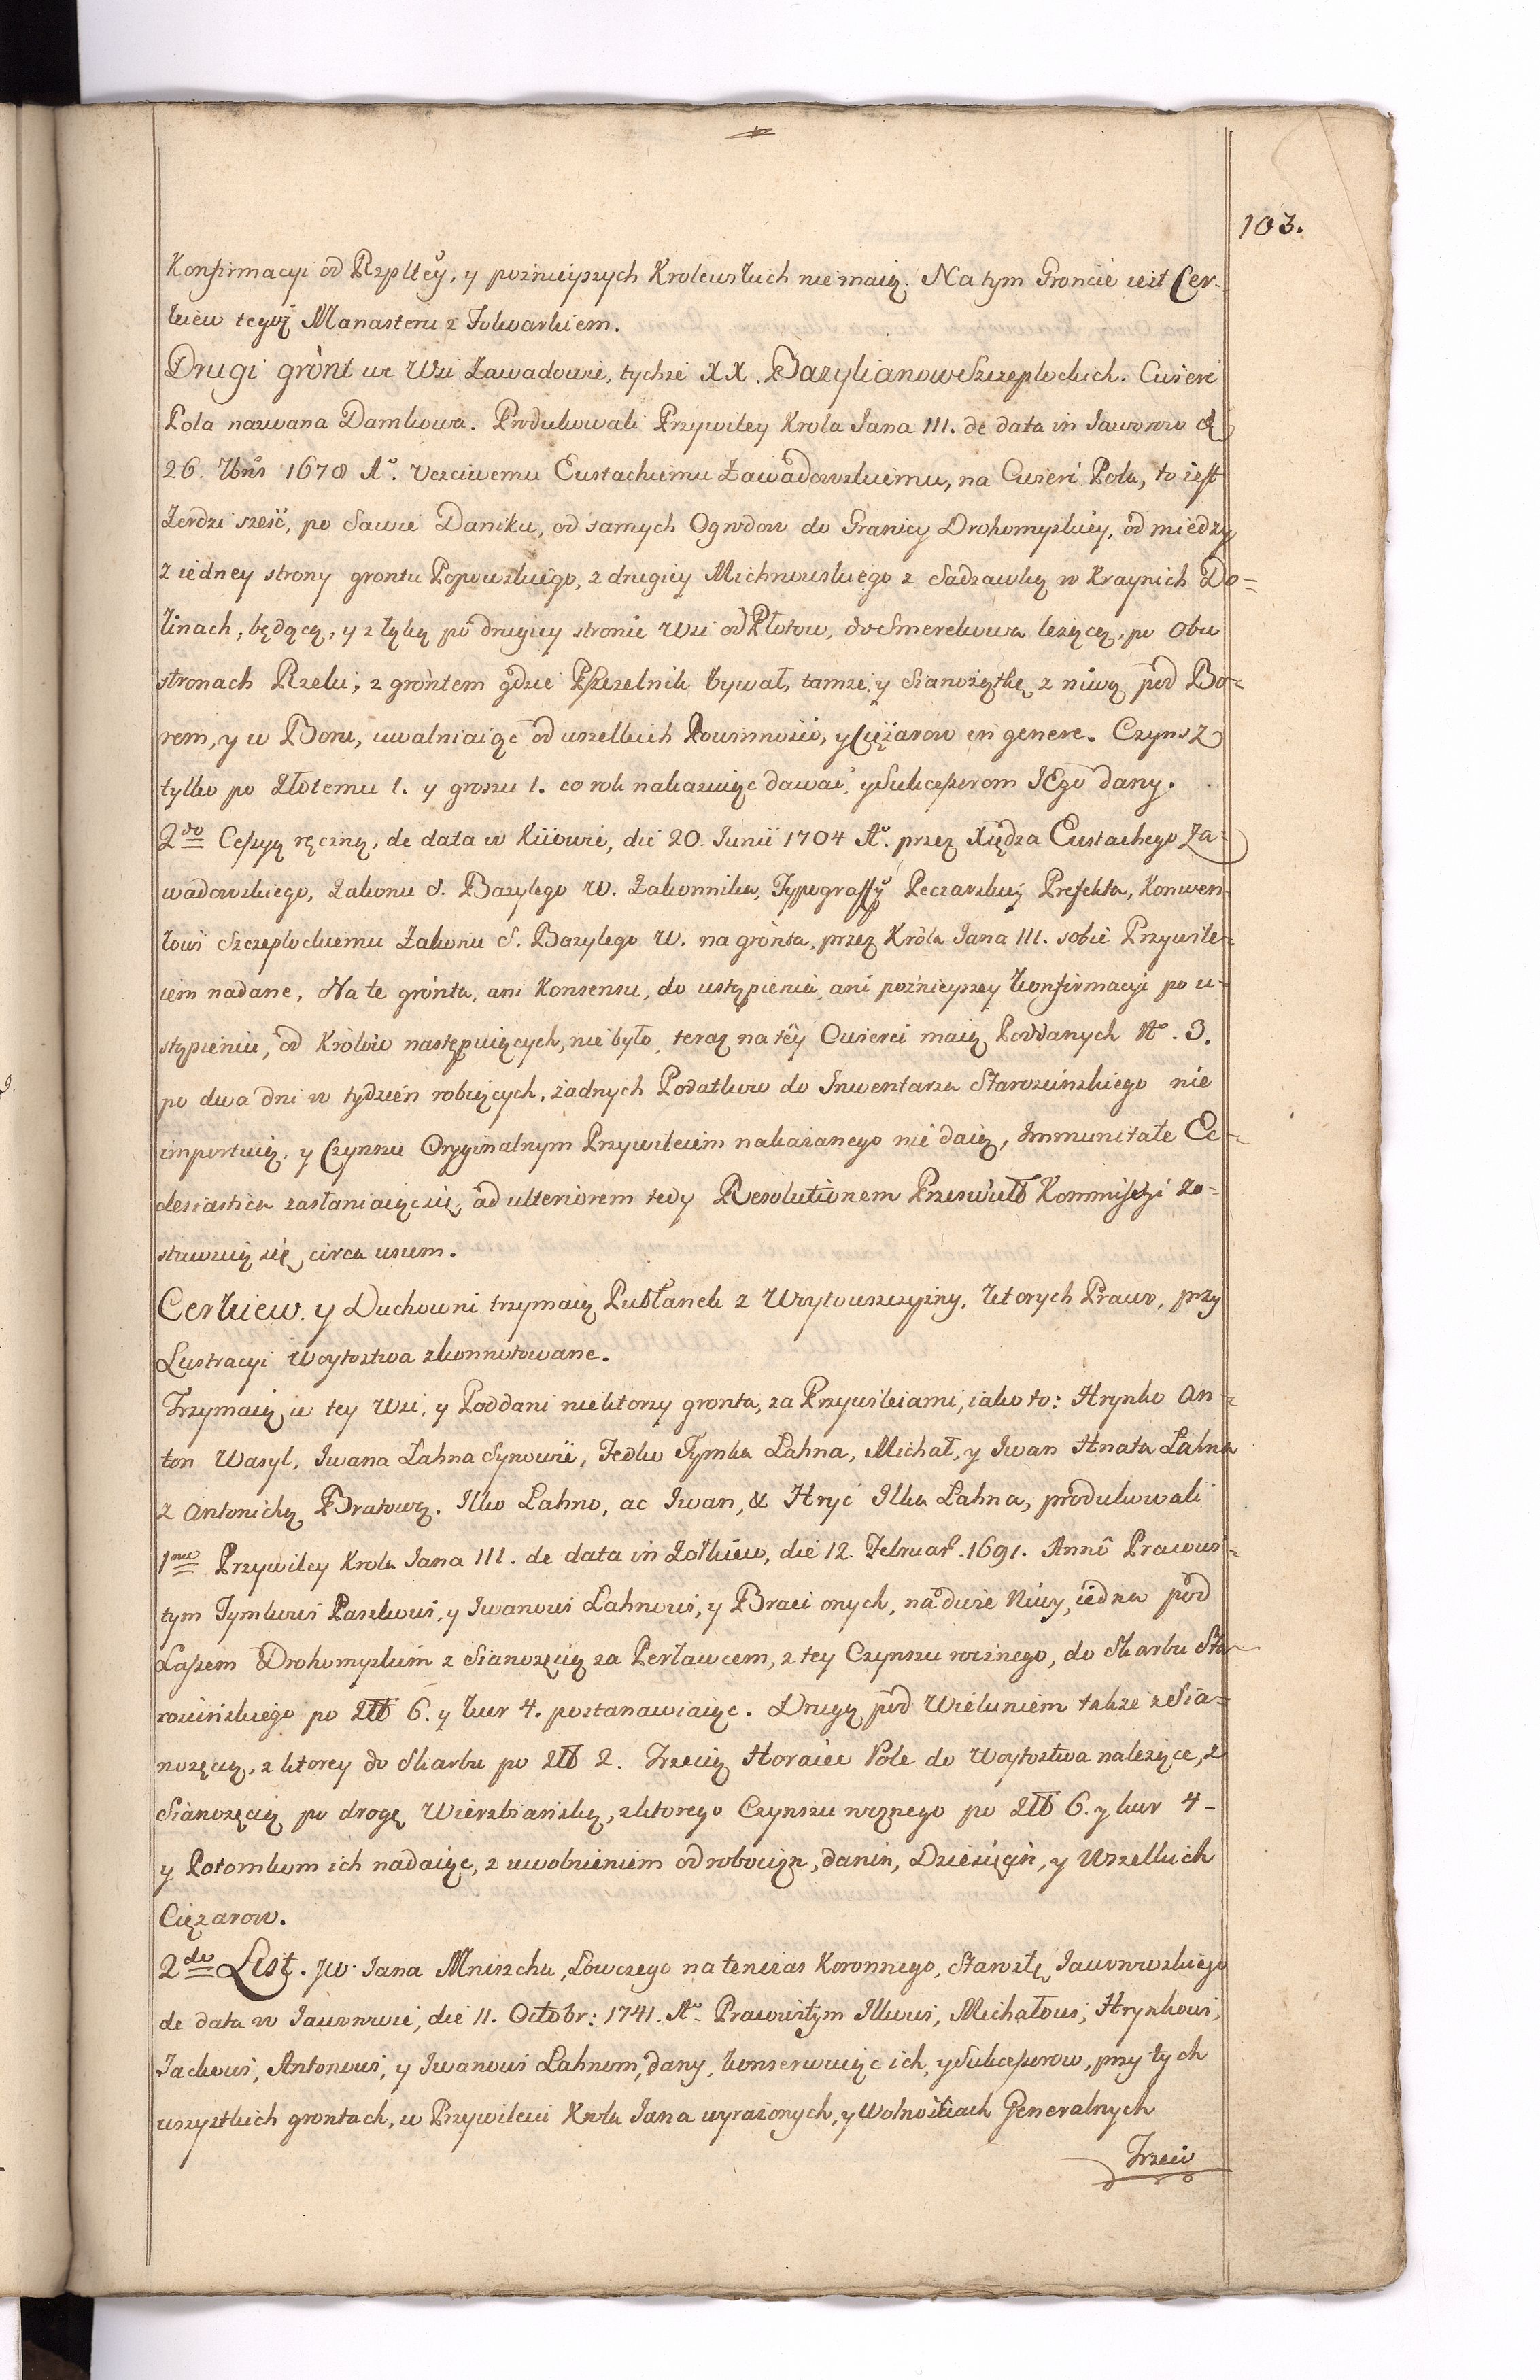 103.
Konfirmacyi od Rzpltey, y poznieyszych Krolewskich nie maią. Na tym Groncie iest Cer-
kiew teyż Manasteru z Folwarkiem.
Drugi grònt we Wsi Zawadowie, tychże XX. Bazylianow Szczeplockich. Cwierć
Pola nazwana Damkowa. Produkowali Przywiley Krola Jana III. de data in Jaworow d
26. 7bris 1678 Ao. Uczciwemu Eustachiemu Zawadowskiemu, na Cwierć Pola, to iest
Zerdzi sześć, po Sawie Daniku, od samych Ogrodow do Granicy Drohomyskiey, od miedzy
z iedney strony grontu Popowskiego, z drugiey Michnowskiego z Sadzawką w Kraynich Do=
linach, będącą, y z łąką po drugiey stronie Wsi od Płotow, do Smerekowa leżącą, po obu
stronach Rzeki, z gròntem gdzie Pszczelnik bywał, tamże y Sianożątkę z niwą pod Bo=
rem, y w Boru, uwalniaiąc od wszelkich Powinności, y Ciężarow in genere. Czynsz
tylko po Złotemu 1. y groszu 1. co rok nakazuiąc dawać, y Sukcessorom JEgo dany.
2do Cessyą ręczną, de data w Kiiowie, die 20. Junii 1704 Ao. przez Xiędza Eustachego Za=
wadowskiego, Zakonu S. Bazylego W. Zakonnika, Typograffii Peczarskiey Prefekta, Konwen=
towi Szczeplockiemu Zakonu S. Bazylego W. na grònta, przez Kròla Jana III. sobie Przywile=
iem nadane, Na te grònta, ani Konsensu, do ustąpienia, ani poźnieyszey konfirmacyi po u=
stąpieniu, od Krolòw następuiących, nie było, teraz na tey Cwierci maią Poddanych No. 3.
po dwa dni w tydzień robiących, żadnych Podatkow do Inwentarza Starościńskiego nie
importuią, y Czynszu Oryginalnym Przywileiem nakazanego nie daią, Immunitate Ec=
clesiastica zasłaniaiąc się, ad ulteriorem tedy Resolutionem Przeświett Kommissyi zo=
stawuią się circa usum.
Cerkiew y Duchowni trzymaią Putłanek z Woytowszczyzny, ktorych Prawo, przy
Lustracyi Woytostwa zkonnotowane.
Trzymaią w tey Wsi, y Poddani niektorzy gronta, za Przywileiami, iako to: Hrynko An=
ton Wasyl, Iwana Lahna Synowie, Fedko Tymka Lahna, Michał, y Iwan Hnata Lahna
z Antonichą Bratową. Ilko Lahno, ac Iwan, & Hryć Ilka Lahna, produkowali
1mo Przywiley Krola Jana III. de data in Żołkiew, die 12. Februar. 1691. Annô Pracowi=
tym Tymkowi Paszkowi, y Iwanowi Lahnowi, y Braci onych, na dwie Niwy, iedna pod
Lasem Drohomyskim z Sianożęcią za Perławcem, z tey Czynszu rocznego, do Skarbu Sta
rościńskiego po Złł 6. y kur 4. postanawiaiąc. Drugą pod Wieluniem także z Sia=
nożęcią, z ktorey do Skarbu po Złł 2. Trzecią Horaiec Pole do Woytostwa należące, z
Sianożęcią po drogę Wierzbiańską, z ktorego Czynszu rocznego po Złł 6. y kur 4-
y Potomkom ich nadaiąc, z uwolnieniem od robocizn, danin, Dziesięcin, y Wszelkich
Ciężarow.
2do List. JW. Jana Mniszcha, Łowczego na tenczas Koronnego, Starostę Jaworowskiego
de data w Jaworowie, die 11. Octobr: 1741. Ao. Pracowitym Ilkowi, Michałowi, Hrynkowi,
Jackowi, Antonowi, y Iwanowi Lahnom, dany, konserwuiąc ich, y Sukcessorow, przy tych
wszystkich grontach, w Przywileiu Krola Jana wyrażonych, y Wolnościach Generalnych
Trzeci